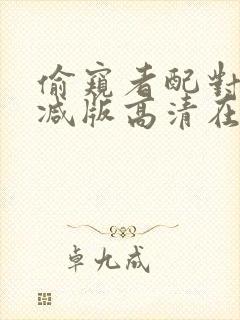 偷窺者配對
减版高清在
卓九成